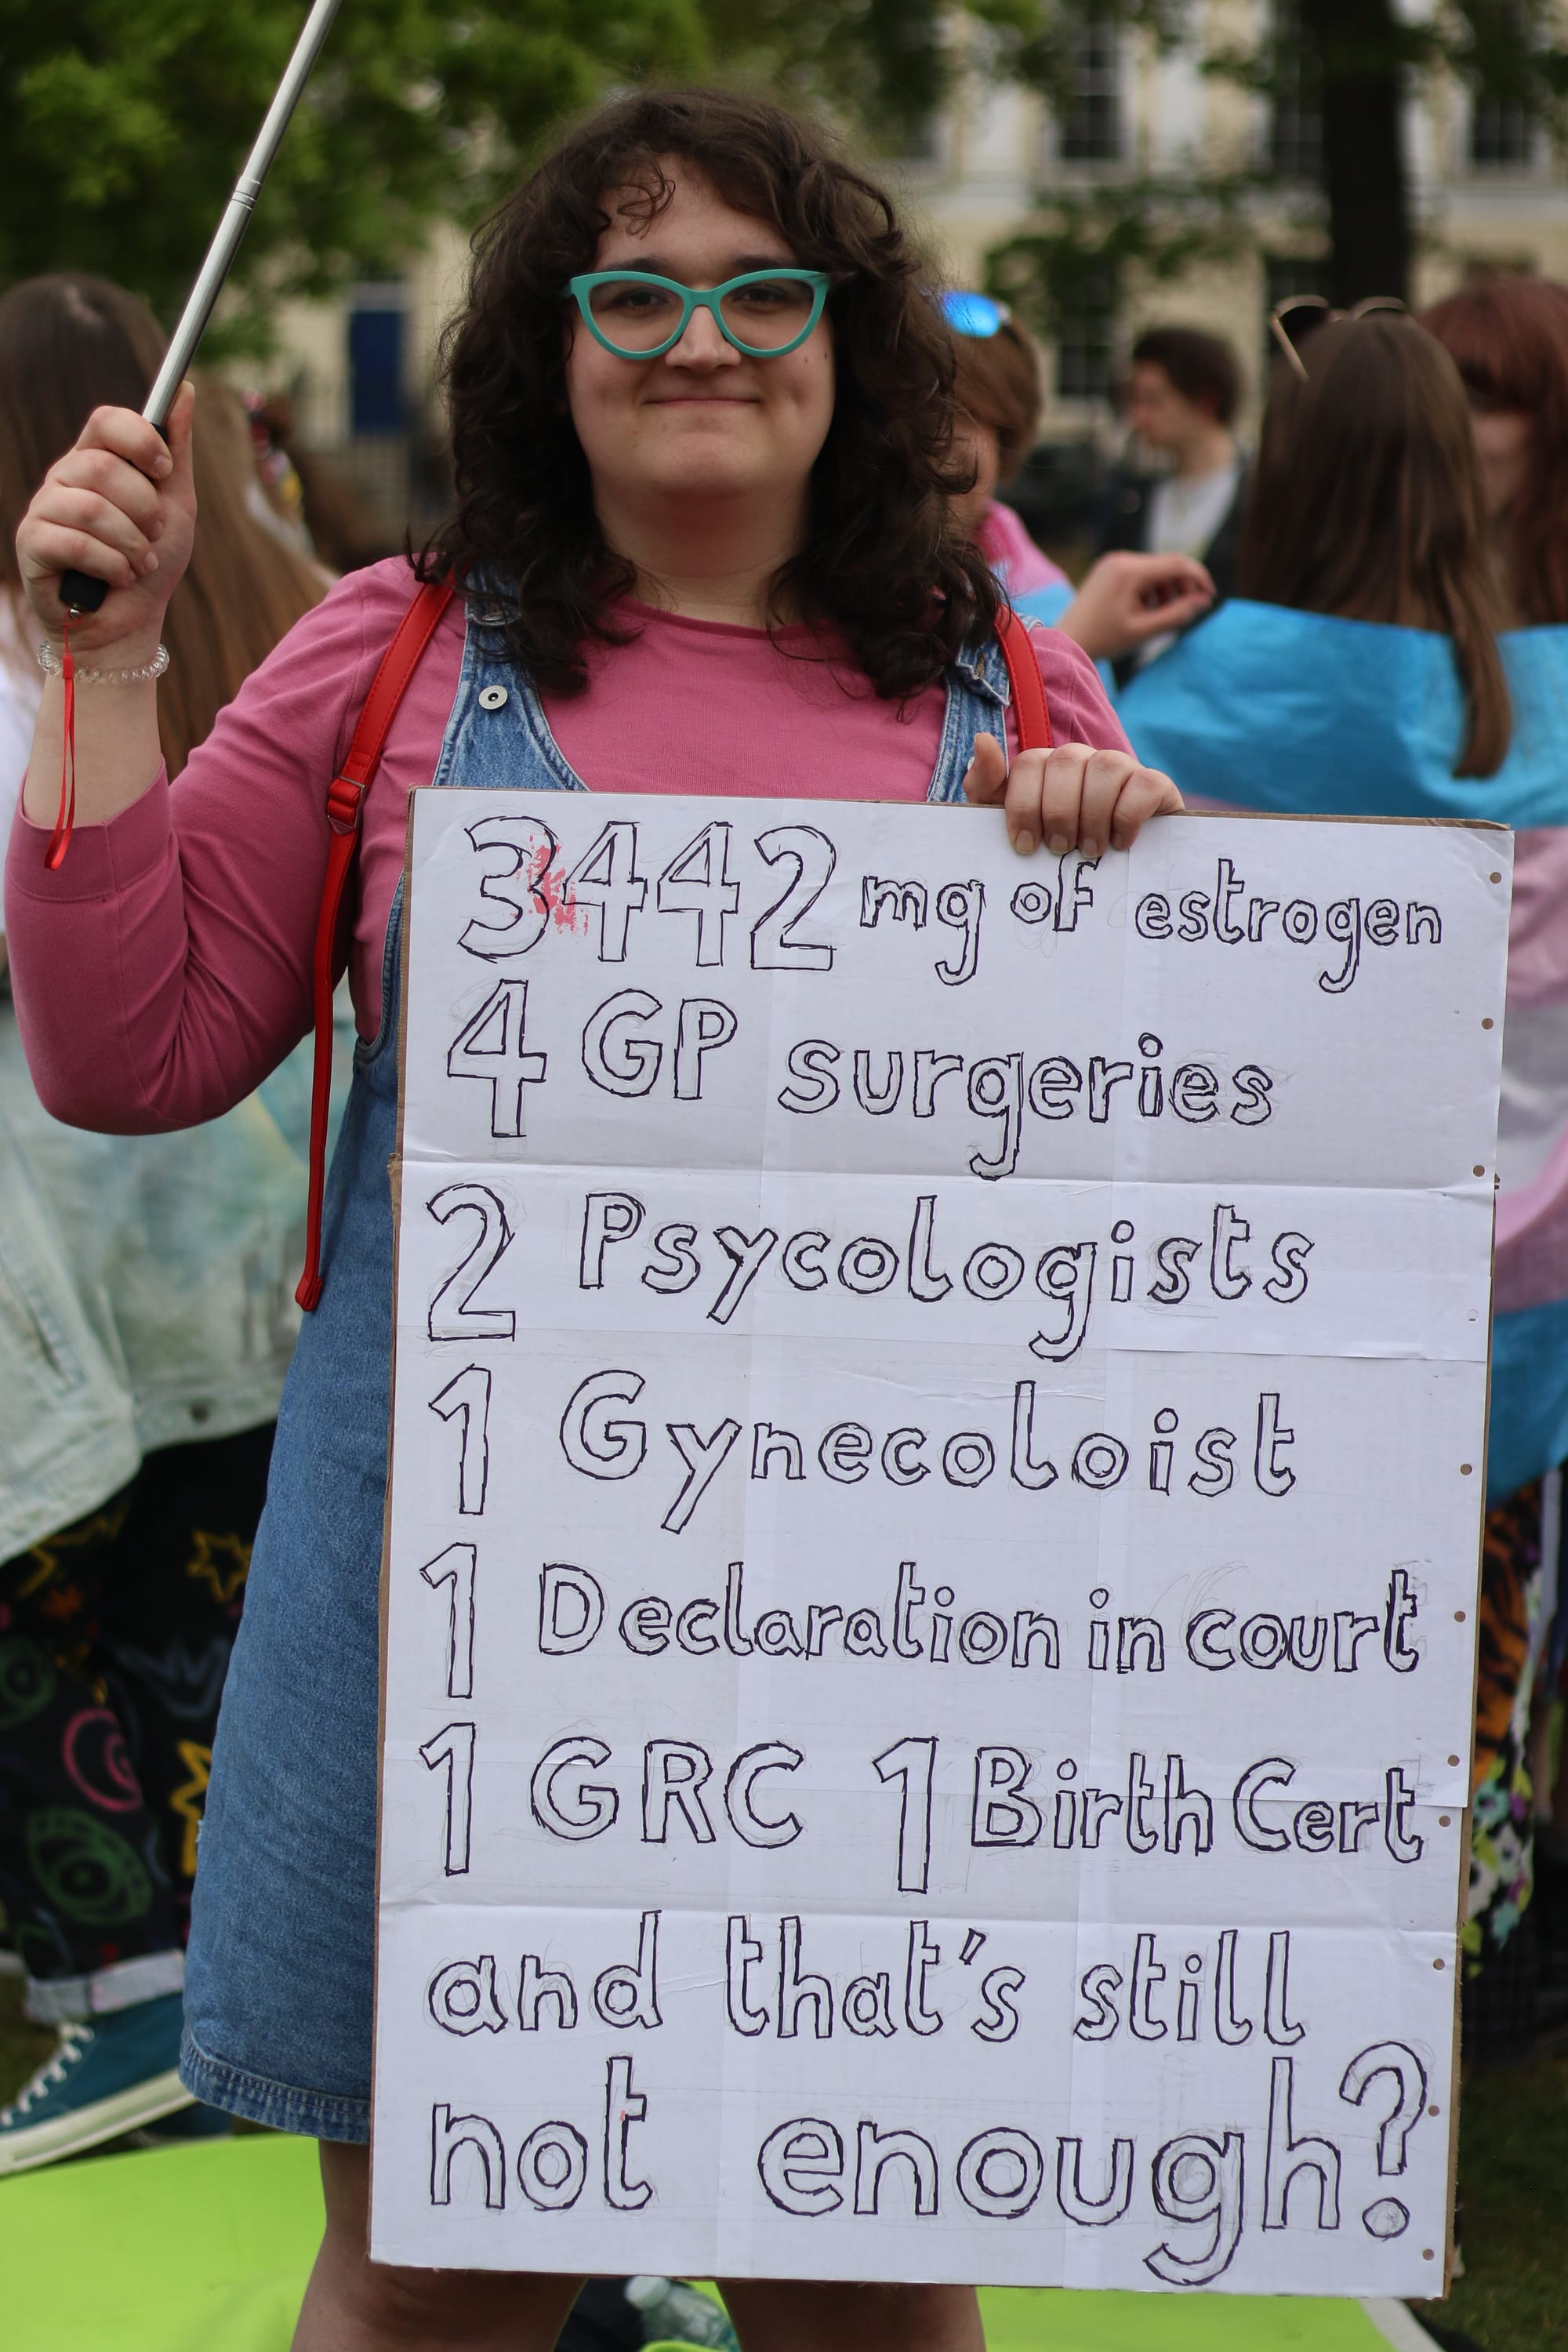 3442 mg of estrogen
4 GP surgeries
2 Psycologists
1 Gynecoloist
1 Declaration in court
1 GRC 1 Birth Cert
and that's still
not enough?